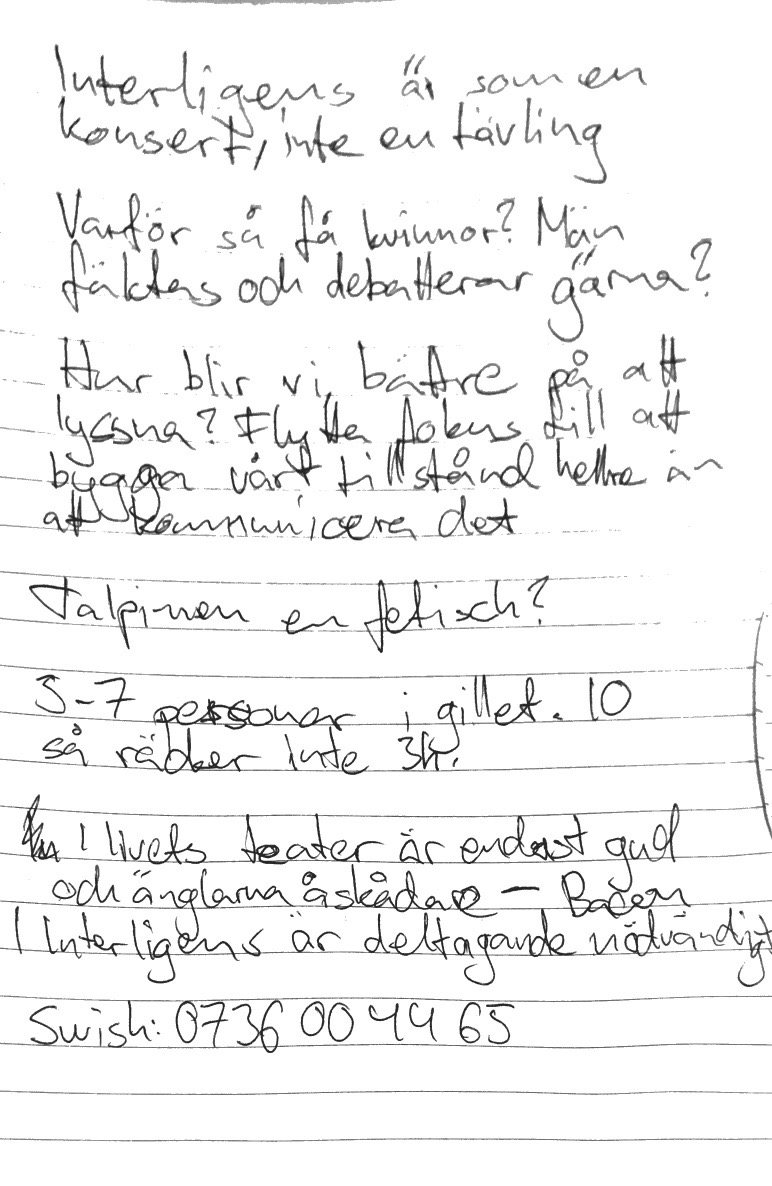 Interligens är som en
konsert, inte en tävling
Varför så få kvinnor? Män
fäktas och debatterar gärna?
Hur blir vi bättre på att
lyssna? Flytta fokus till att
bygga vårt tillstånd hellre än
att kommunicera det
Talpinnen en fetisch?
5-7 personer i gillet. 10
så räcker inte 3h.
I livets teater är endast gud
och änglarna åskådare – Bacon
I Interligens är deltagande nödvändigt
Swish: 0736 00 44 65